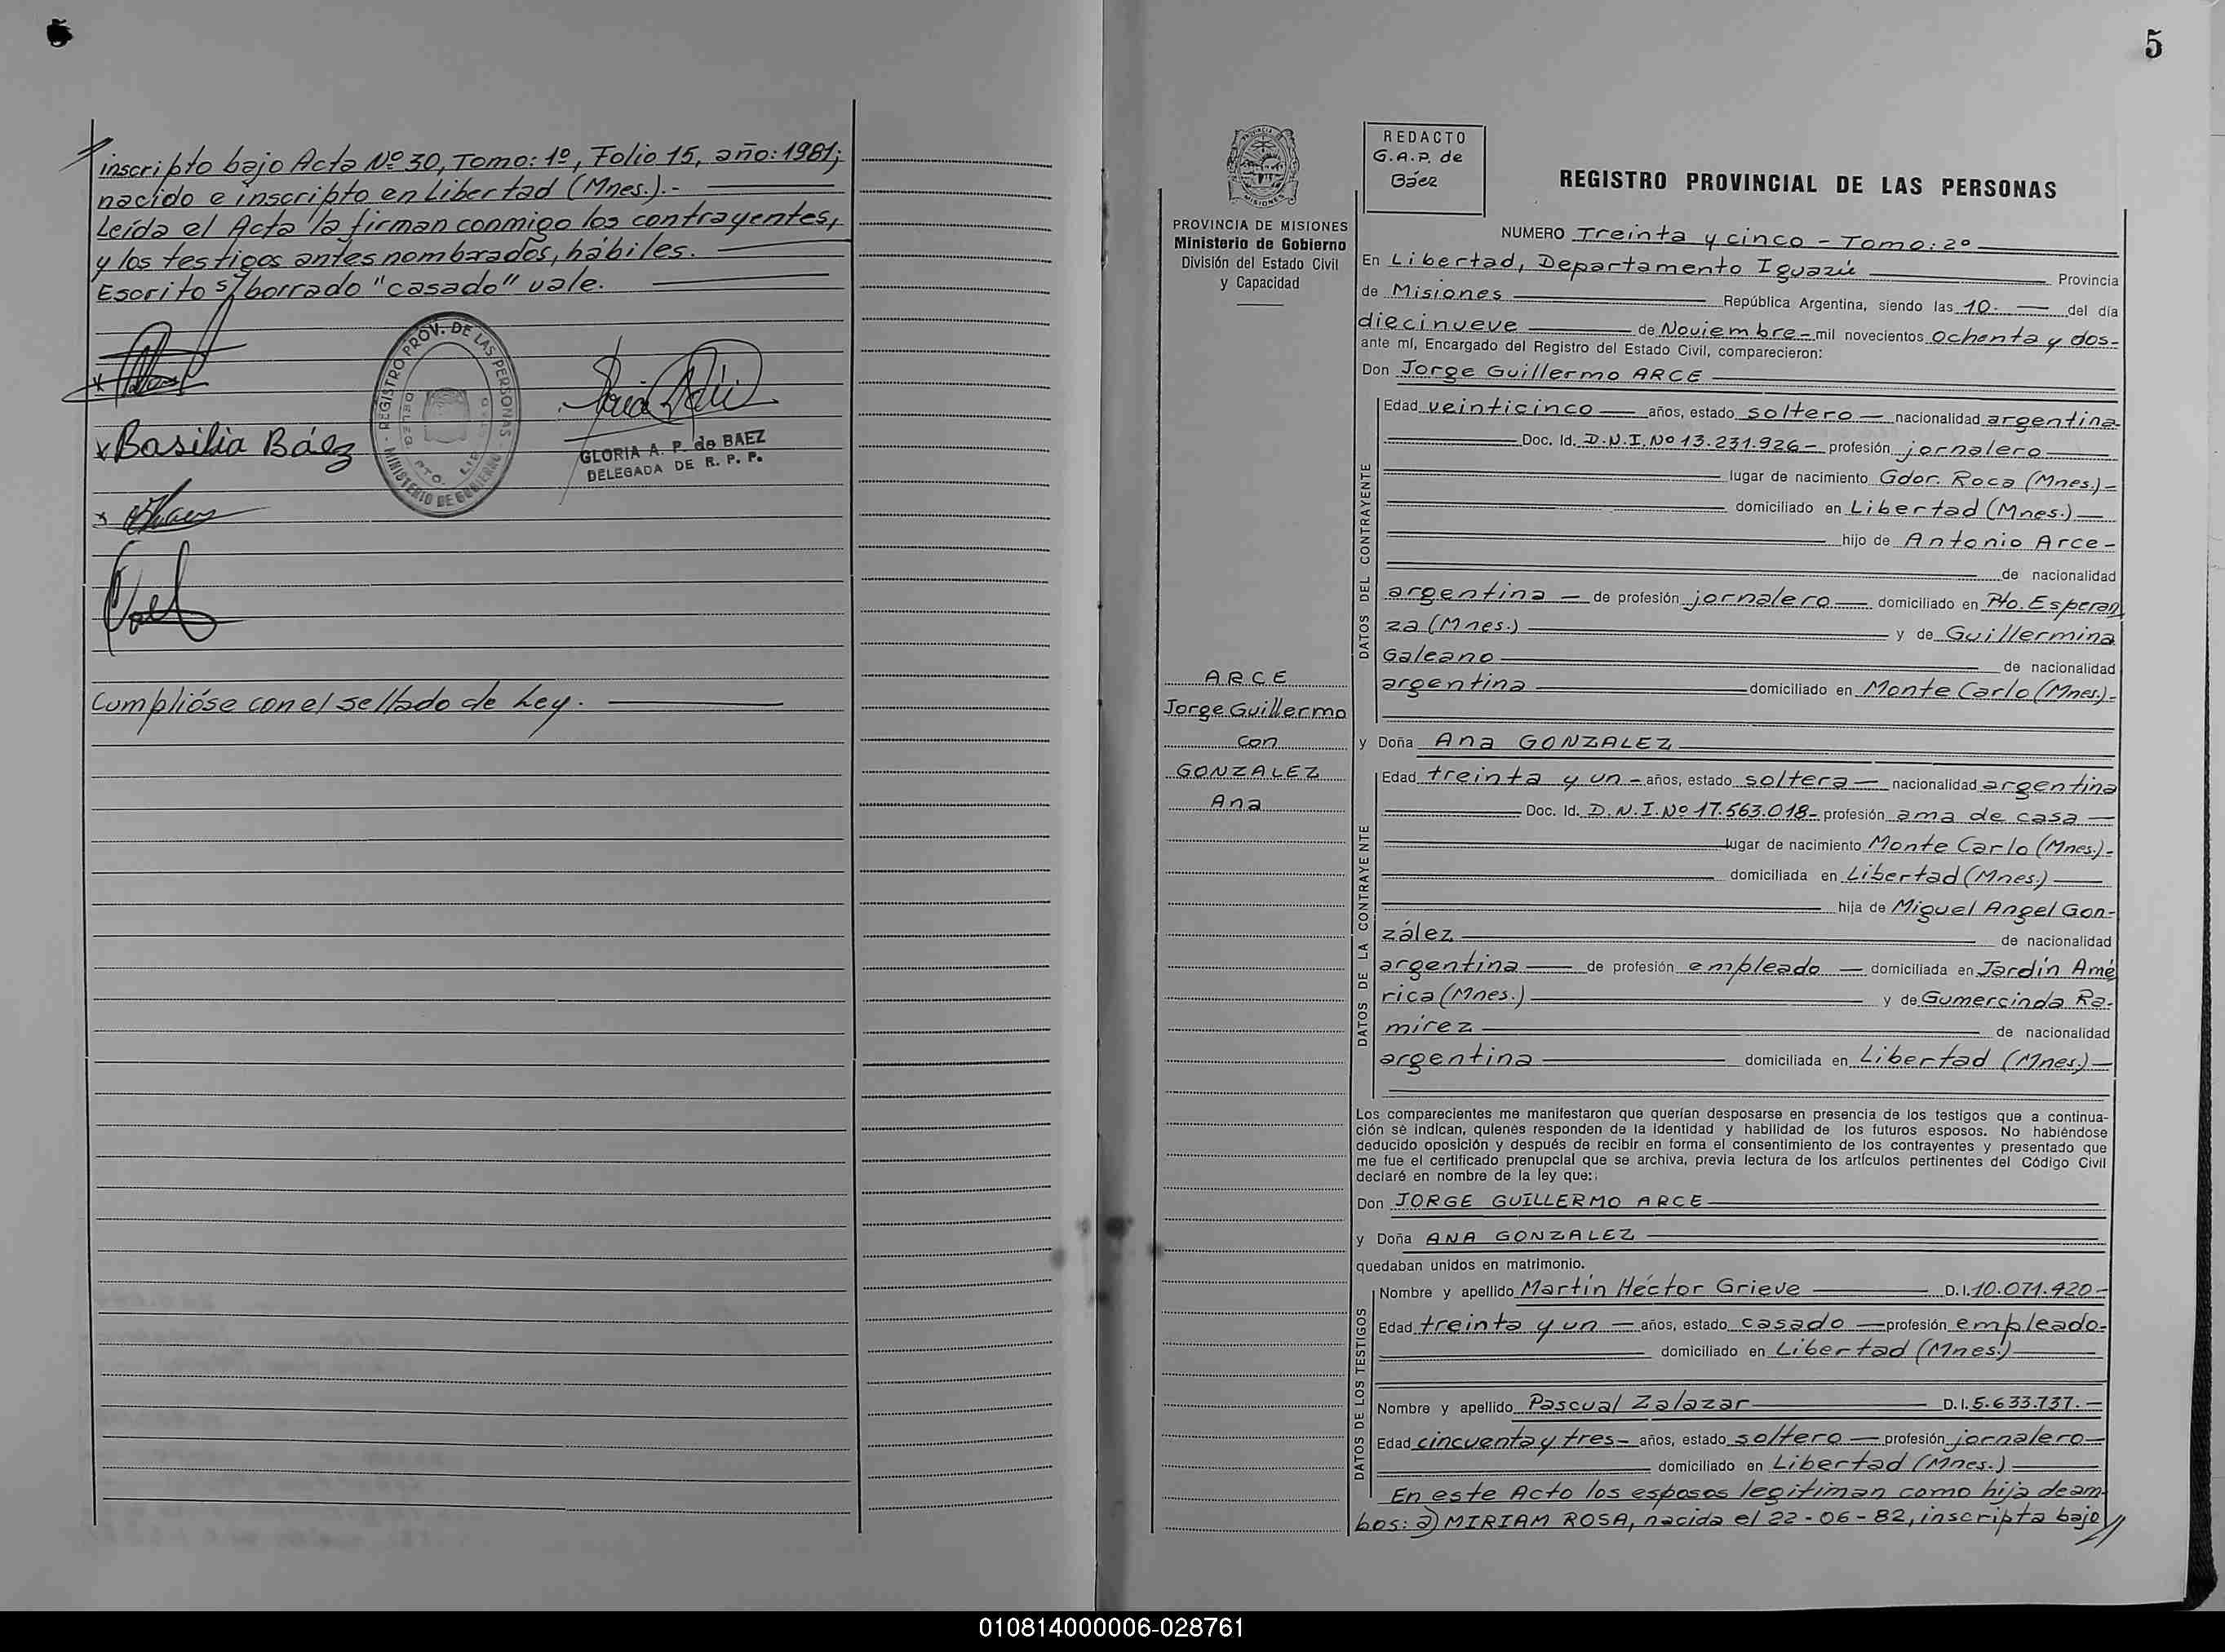 inscripto bajo Acta Nº 30, Tomo: 1º, Folio 15, año: 1981;
nacido e inscripto en Libertad (Mnes.).-
Leída el Acta la firman conmigo los contrayentes,
y los testigos antes nombrados, hábiles.
Escrito s/borrado "casado" vale.
REGISTRO PROV. DE LAS PERSONAS
MINISTERIO DE GOBIERNO
x Basilia Báez
GLORIA A. P. de BAEZ
DELEGADA DE R. P. P.
Cumplióse con el sellado de Ley.
5
PROVINCIA DE MISIONES
Ministerio de Gobierno
División del Estado Civil
y Capacidad
REDACTO
G.A.P. de
Báez
REGISTRO PROVINCIAL DE LAS PERSONAS
NUMERO Treinta y cinco - Tomo: 2º
En Libertad, Departamento Iguazú Provincia
de Misiones República Argentina, siendo las 10.- del día
diecinueve de Noviembre - mil novecientos ochenta y dos-
ante mí, Encargado del Registro del Estado Civil, comparecieron:
Don Jorge Guillermo ARCE
DATOS DEL CONTRAYENTE
Edad veinticinco años, estado soltero nacionalidad argentina-
Doc. Id. D.N.I. Nº 13.231.926- profesión jornalero
lugar de nacimiento Gdor. Roca (Mnes.)-
domiciliado en Libertad (Mnes.)
hijo de Antonio Arce-
de nacionalidad
argentina de profesión jornalero domiciliado en Pto. Esperan
za (Mnes.) y de Guillermina
Galeano de nacionalidad
argentina domiciliado en Monte Carlo (Mnes.)-
ARCE
Jorge Guillermo
con
GONZALEZ
Ana
y Doña Ana GONZALEZ
DATOS DE LA CONTRAYENTE
Edad treinta y un - años, estado soltera nacionalidad argentina
Doc. Id. D.N.I. Nº 17.563.018- profesión ama de casa
lugar de nacimiento Monte Carlo (Mnes.)-
domiciliada en Libertad (Mnes.)
hija de Miguel Angel Gon-
zález de nacionalidad
argentina de profesión empleado domiciliada en Jardín Amé
rica (Mnes.) y de Gumercinda Ra-
mírez de nacionalidad
argentina domiciliada en Libertad (Mnes.)
Los comparecientes me manifestaron que querían desposarse en presencia de los testigos que a continua-
ción se indican, quienes responden de la identidad y habilidad de los futuros esposos. No habiéndose
deducido oposición y después de recibir en forma el consentimiento de los contrayentes y presentado que
me fue el certificado prenupcial que se archiva, previa lectura de los artículos pertinentes del Código Civil
declaré en nombre de la ley que:
Don JORGE GUILLERMO ARCE
y Doña ANA GONZALEZ
quedaban unidos en matrimonio.
DATOS DE LOS TESTIGOS
Nombre y apellido Martín Héctor Grieve D.I. 10.071.920-
Edad treinta y un años, estado casado profesión empleado-
domiciliado en Libertad (Mnes.)
Nombre y apellido Pascual Zalazar D.I. 5.633.737.-
Edad cincuenta y tres- años, estado soltero profesión jornalero
domiciliado en Libertad (Mnes.)
En este Acto los esposos legitiman como hija de am-
bos: a) MIRIAM ROSA, nacida el 22-06-82, inscripta bajo //
010814000006-028761